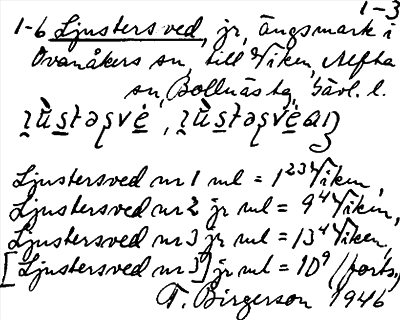 1-3
1-6 Ljustersved, jr, ängsmark i
Ovanåkers sn, till Viken, Alfta
sn, Bollnäs tg, Gävl. l.
Ljustersved nr 1 ml = 1²³ Viken,
Ljustersved nr 2 jr ml = 9⁴ Viken,
Ljustersved nr 3 jr ml = 13⁴ Viken,
[Ljustersved nr 3] jr ml = 10⁹ (forts.)
T. Birgerson 1946